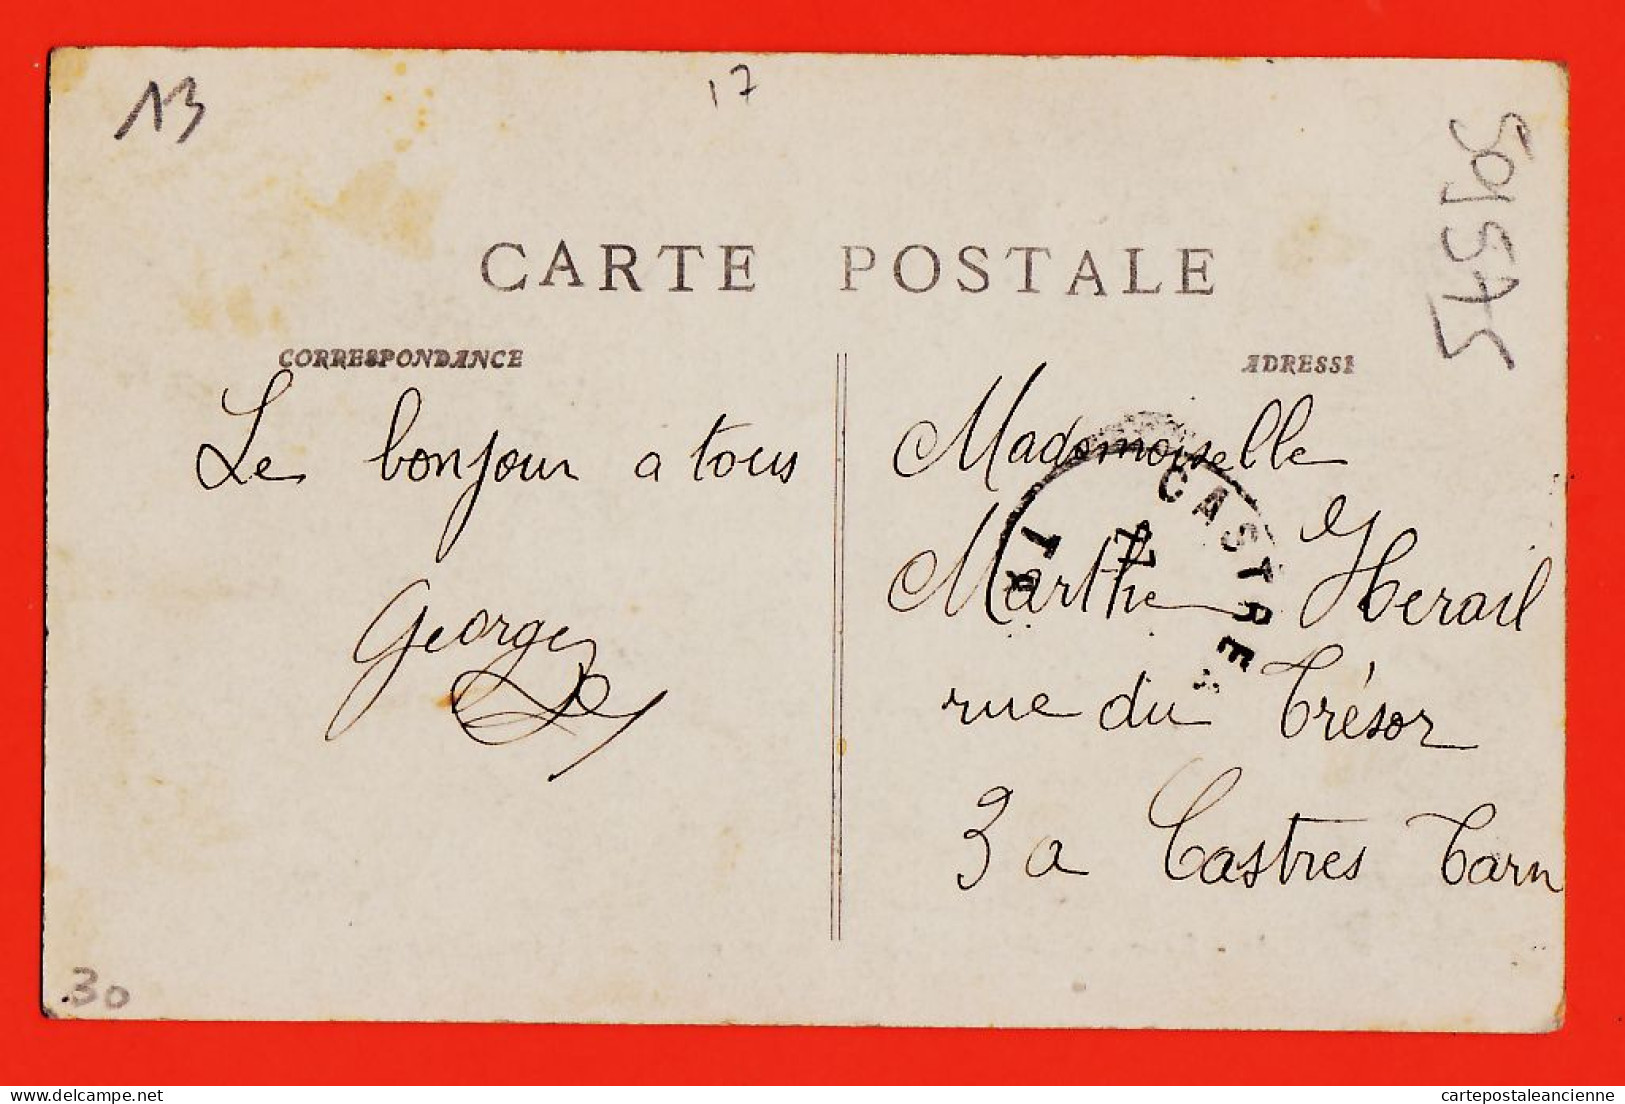 13
17
CARTE POSTALE
CORRESPONDANCE
ADRESSE
Le bonjour a tous
Georges
Mademoiselle
Marthe Herail
rue du Trésor
3 a Castres Tarn
CASTRES
30
cartepostaleancienne